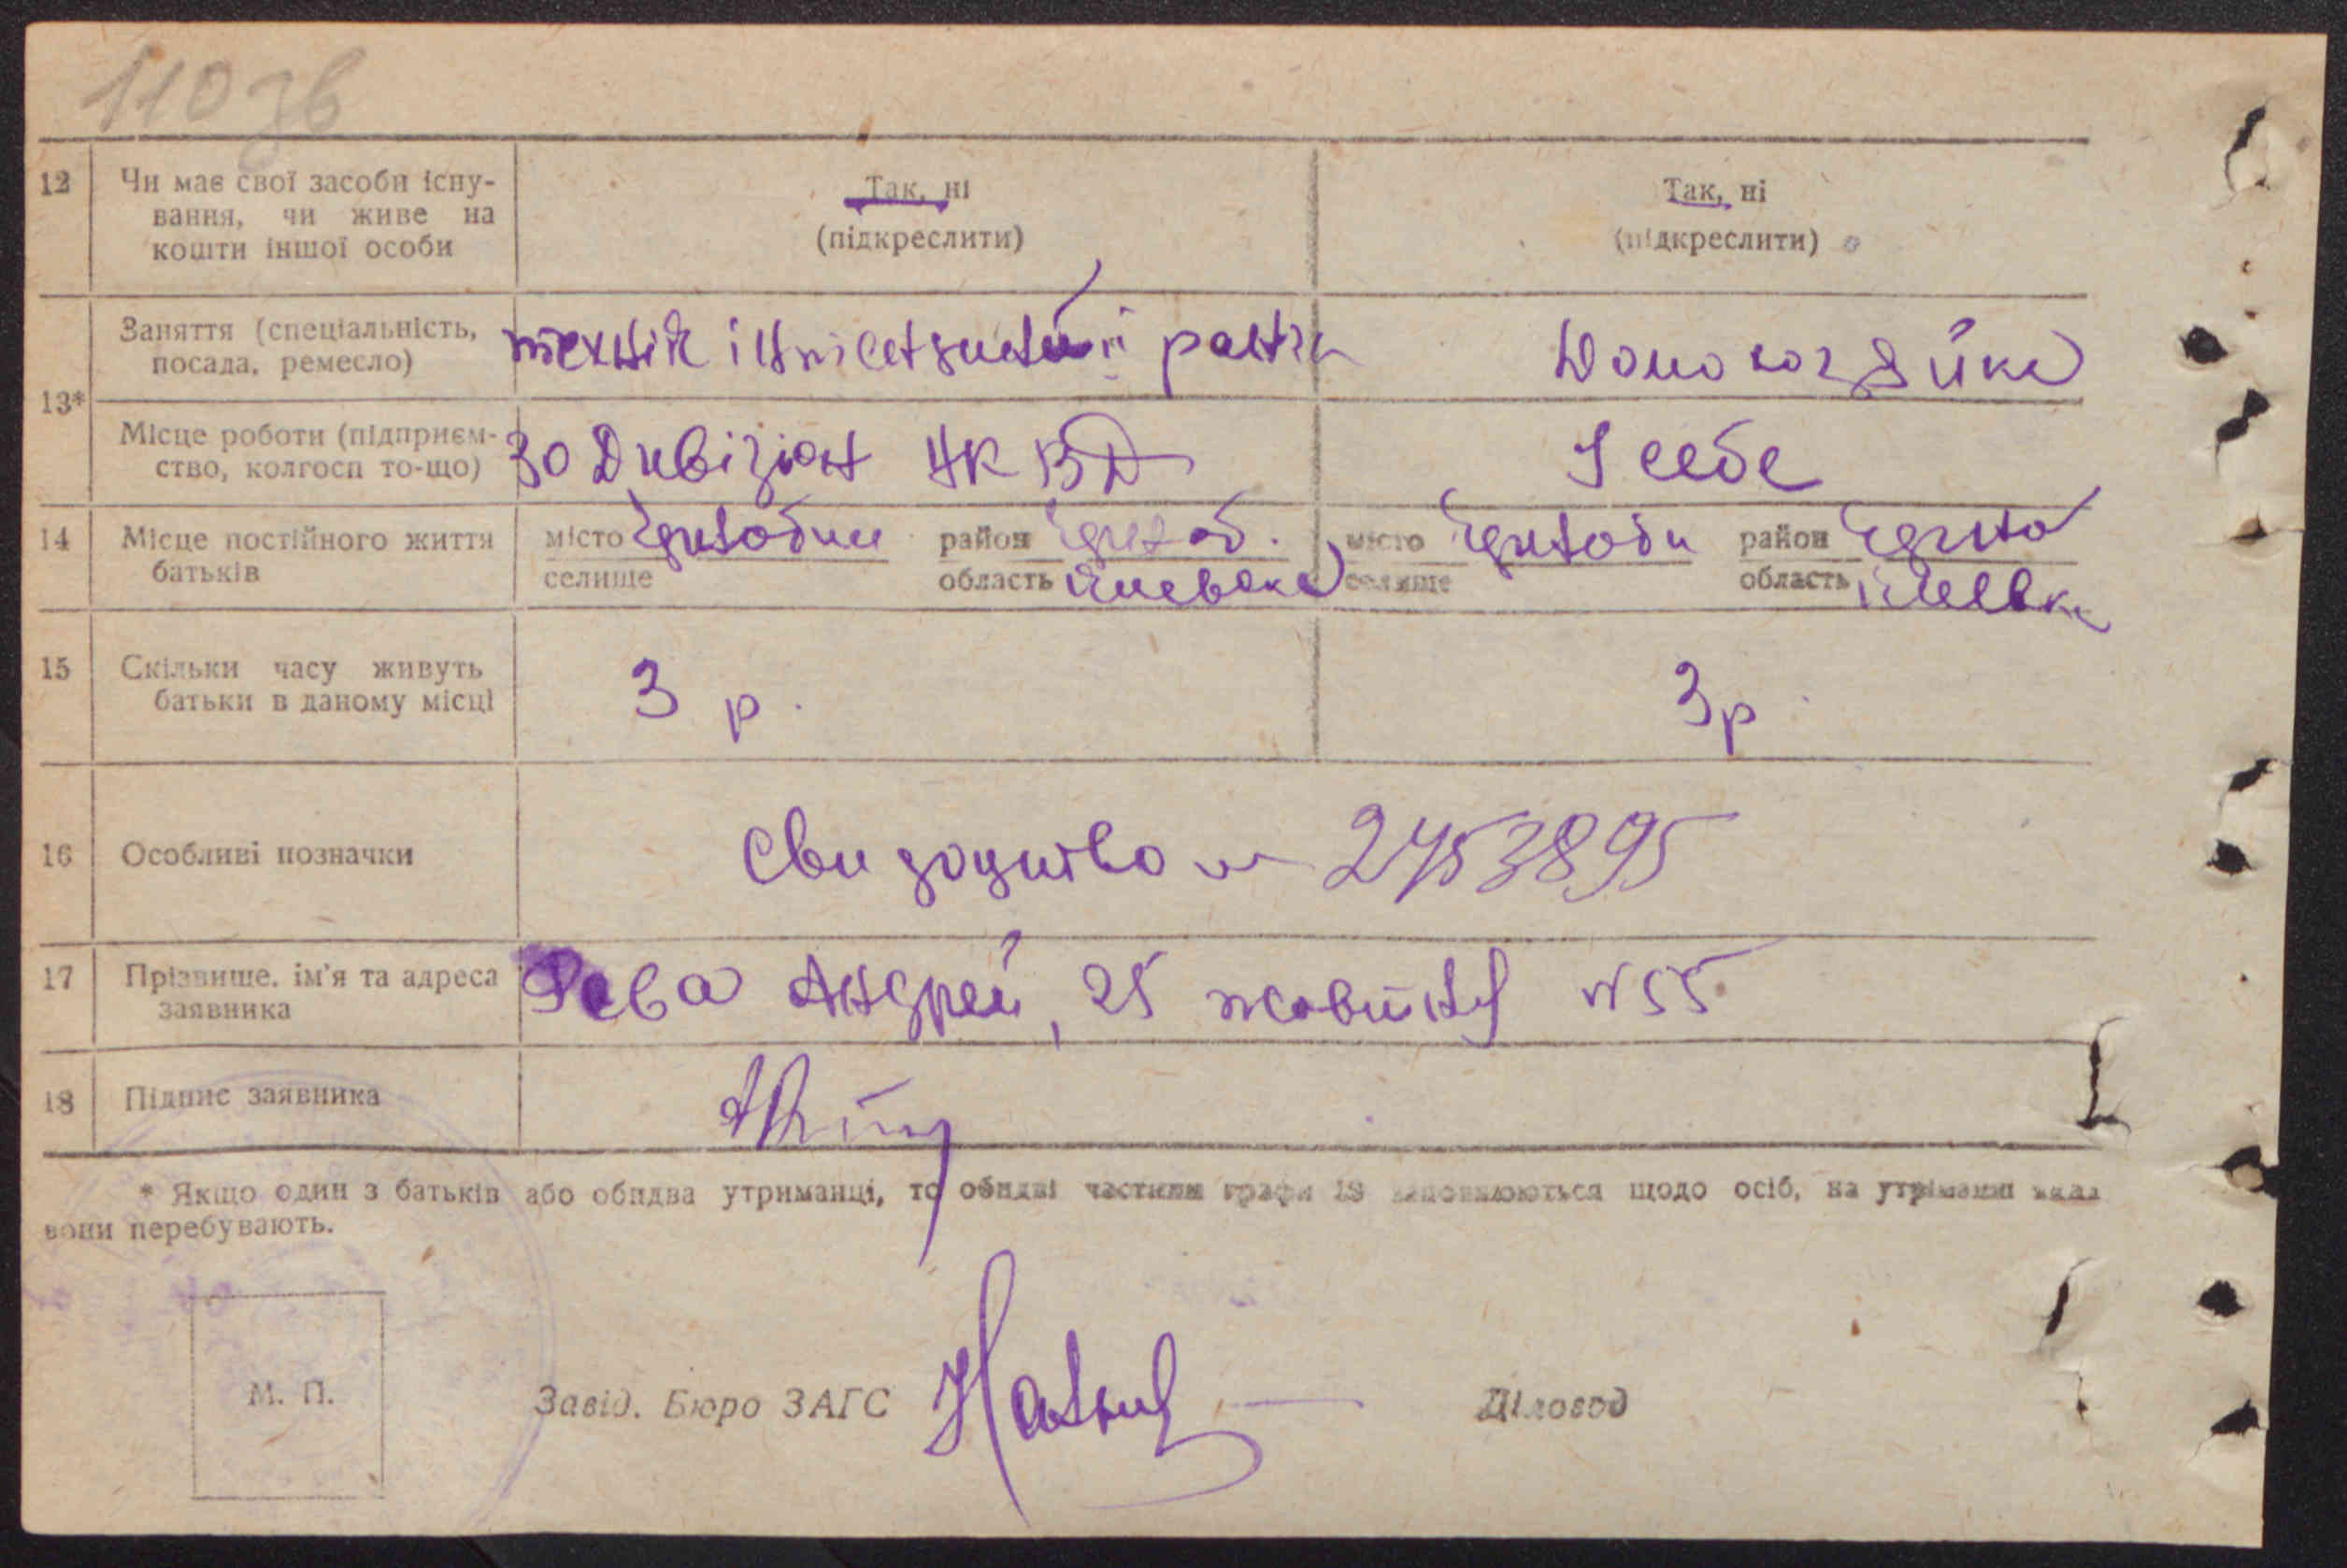 110 зв
12 Чи має свої засоби існу-
вання, чи живе на
кошти іншої особи
Так, ні
(підкреслити)
Так, ні
(підкреслити)
13*
Заняття (спеціальність,
посада, ремесло)
технік
Домохозяйка
Місце роботи (підприєм-
ство, колгосп то-що)
30 Дивізіон НКВД
У себе
14 Місце постійного життя
батьків
місто
селище
район
область
місто
селище
район
область
15 Скільки часу живуть
батьки в даному місці
3 р.
3 р
16 Особливі позначки
2453895
17 Прізвище, ім'я та адреса
заявника
Рева Андрей, 25 жовтня № 55
18 Підпис заявника
* Якщо один з батьків або обидва утриманці, то обидві частини графи 13 заповнюються щодо осіб, на утриманні яких
вони перебувають.
М. П.
Завід. Бюро ЗАГС
Діловод